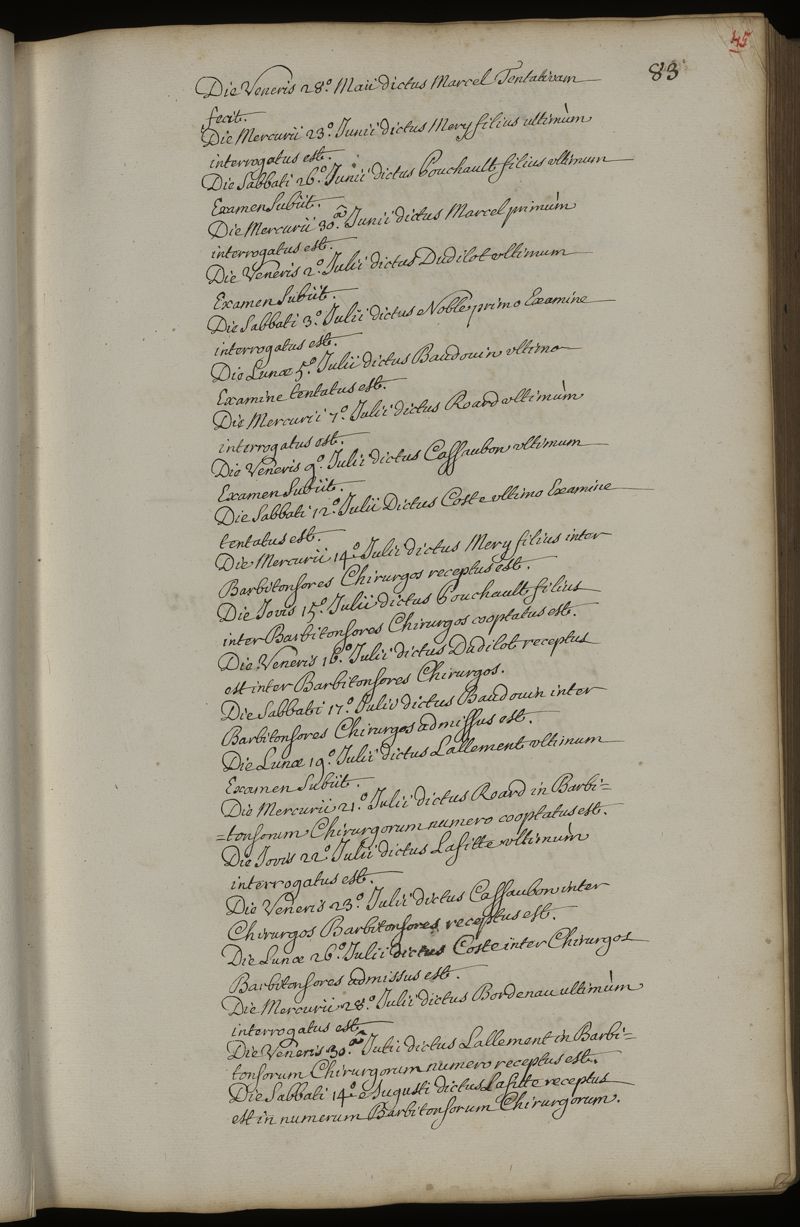 45
83
Die Veneris 28.º Maii dictus Marcel Tentativam
fecit.
Die Mercurii 23.º Junii dictus Mery filius ultimùm
interrogatus est.
Die Sabbati 26.º Junii dictus Pouchault filius ultimum
Examen Subiit.
Die Mercurii 30.ª Junii dictus Marcel primùm
interrogatus est.
Die Veneris 2.º Julii dictus Dudilot ultimum
Examen Subiit.
Die Sabbati 3.º Julii dictus Noble primo Examine
interrogatus est.
Die Lunæ 5.º Julii dictus Baudouin ultimo
Examine tentatus est.
Die Mercurii 7.º Julii dictus Roard ultimùm
interrogatus est.
Die Veneris 9.º Julii dictus Cassaubon ultimum
Examen Subiit.
Die Sabbati 12.º Julii Dictus Coste ultimo Examine
tentatus est.
Die Mercurii 14.º Julii dictus Mery filius inter
Barbitonsores Chirurgos receptus est.
Die Jovis 15.º Julii dictus Pouchault filius
inter Barbitonsores Chirurgos cooptatus est.
Die Veneris 16.º Julii dictus Dudilot receptus
est inter Barbitonsores Chirurgos.
Die Sabbati 17.º Julii dictus Baudouin inter
Barbitonsores Chirurgos admissus est.
Die Lunæ 19.º Julii dictus Lallement ultimum
Examen Subiit.
Die Mercurii 21.º Julii dictus Roard in Barbi=
=tonsorum Chirurgorum numero cooptatus est.
Die Jovis 22.º Julii dictus Lafitte ultimùm
interrogatus est.
Die Veneris 23.º Julii dictus Cassaubon inter
Chirurgos Barbitonsores receptus est.
Die Lunæ 26.º Julii dictus Coste inter Chirurgos
Barbitonsores admissus est.
Die Mercurii 28.º Julii dictus Bordenau ultimùm
interrogatus est.
Die Veneris 30.ª Julii dictus Lallement in Barbi=
tonsorum Chirurgorum numero receptus est.
Die Sabbati 14.º Augusti dictus Lafitte receptus
est in numerum Barbitonsorum Chirurgorum.